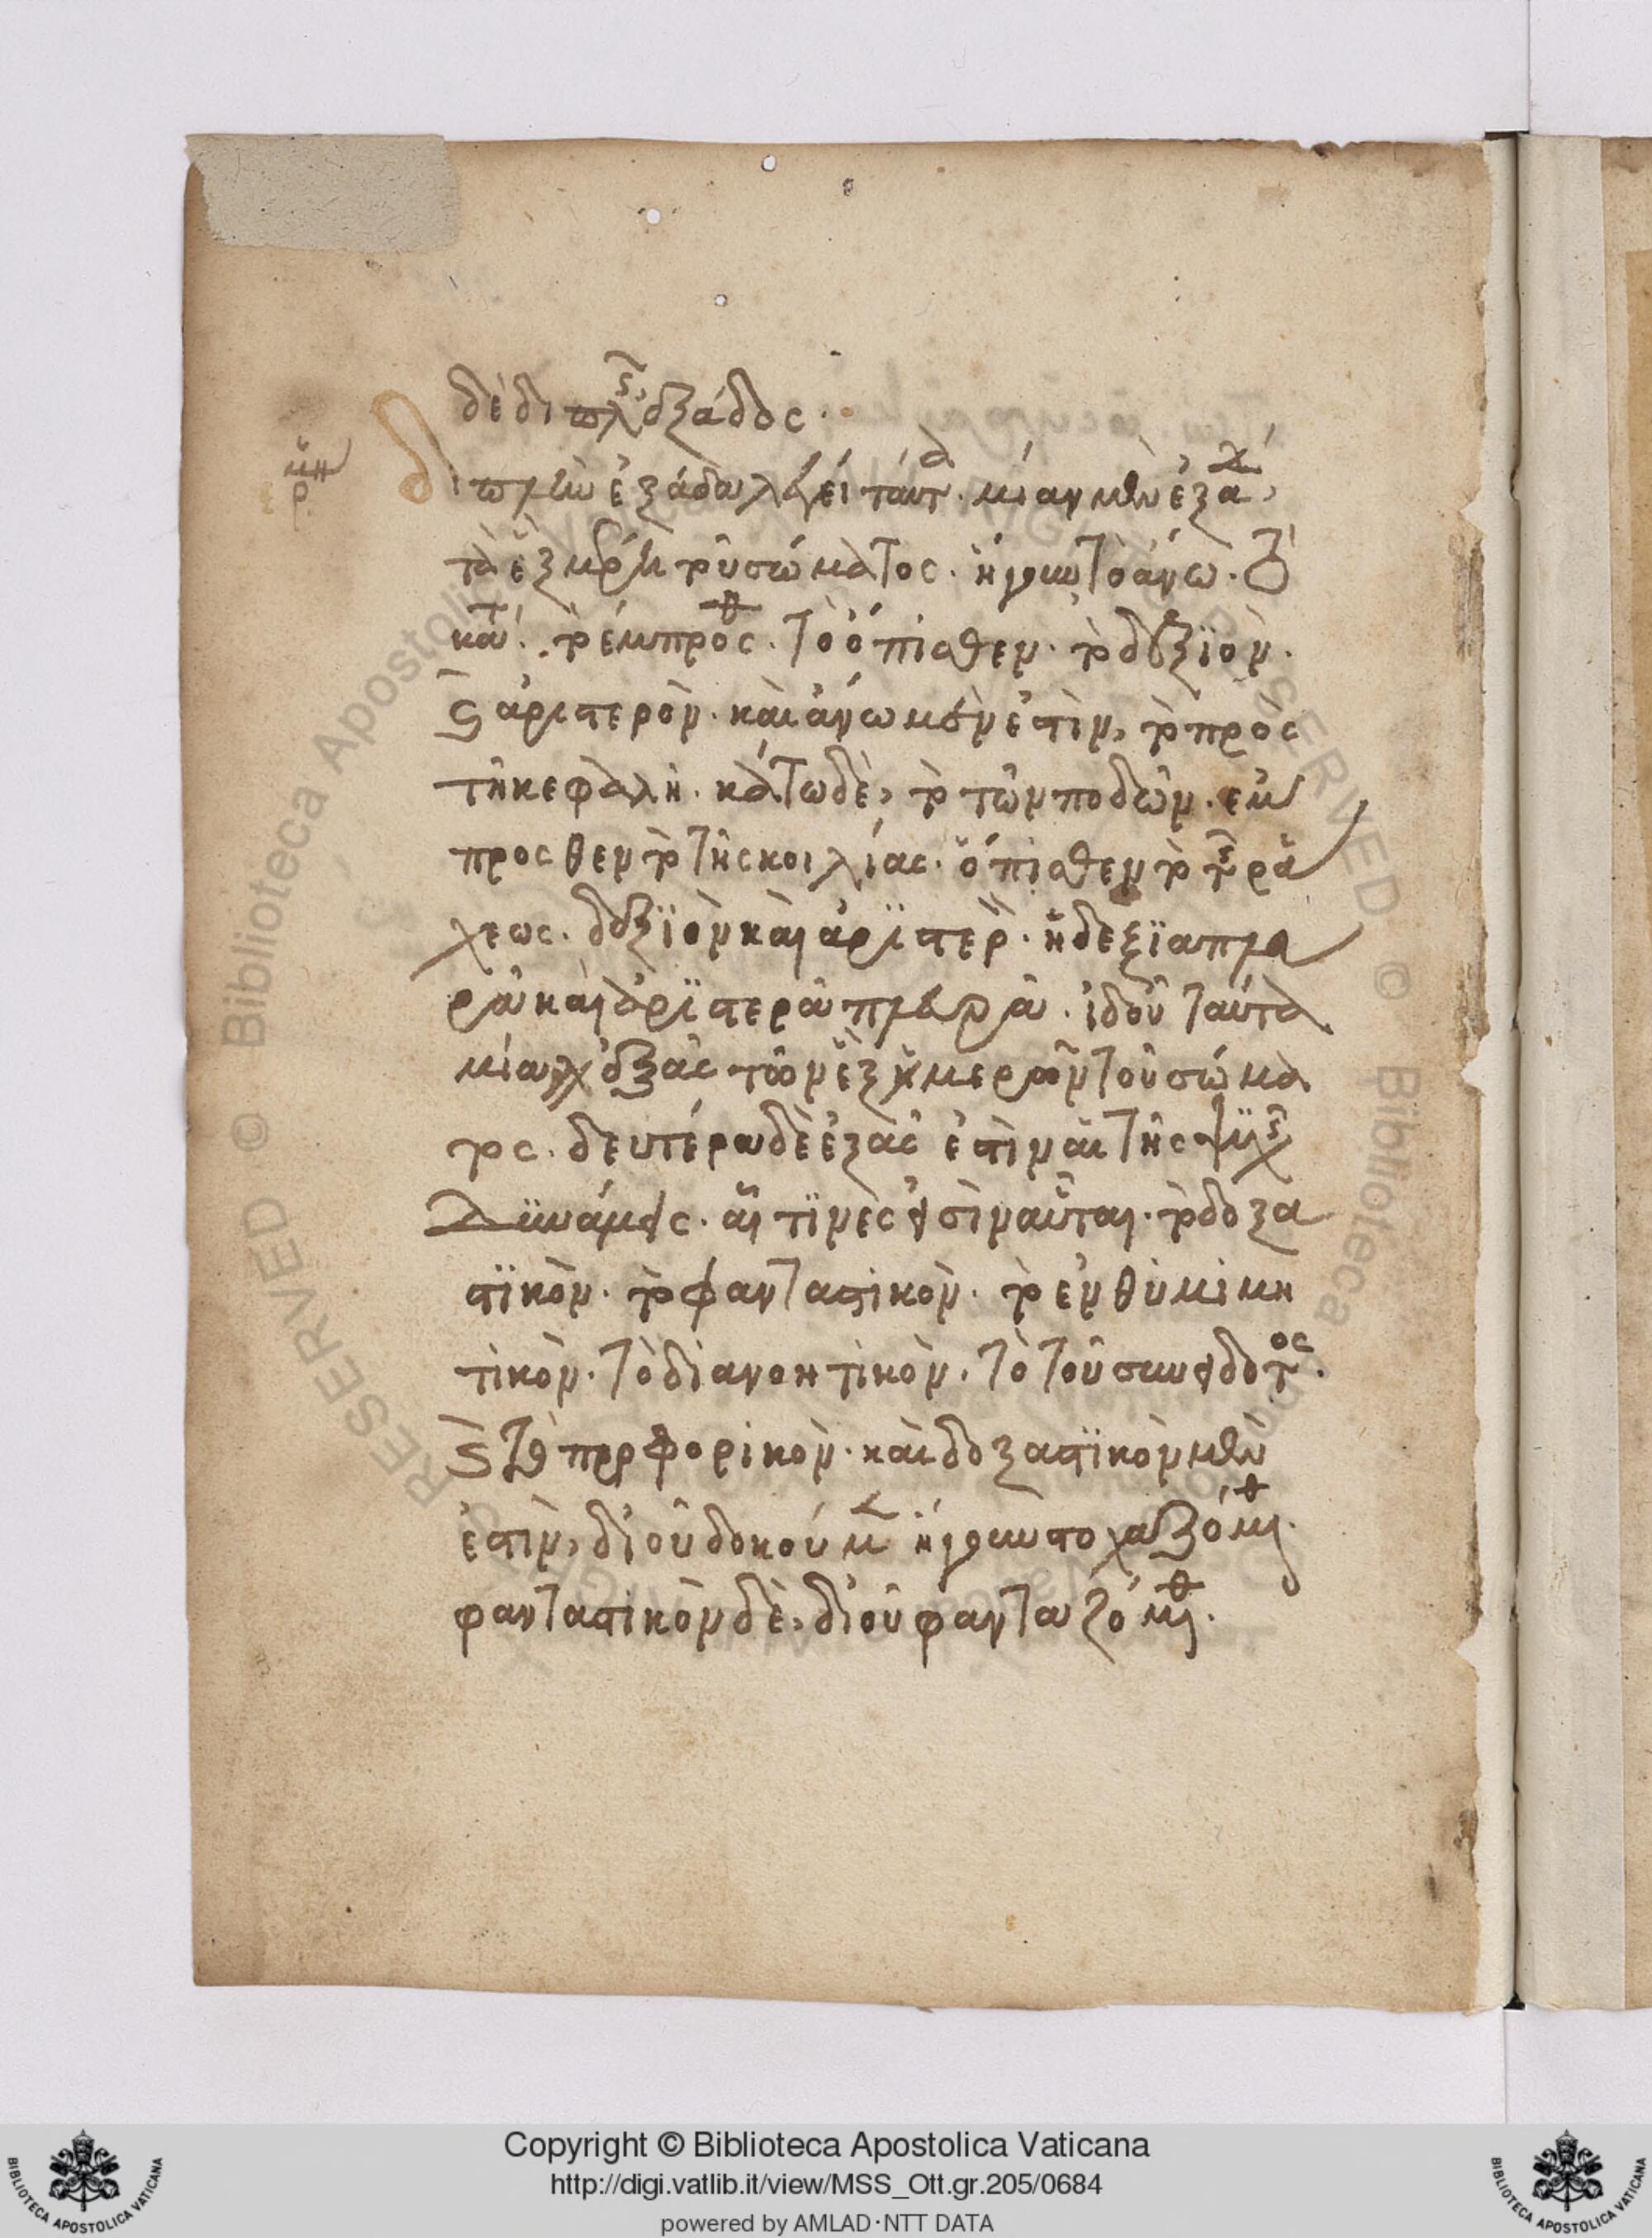 δὲ διπλῆς ἑξάδος.
ἑρμη
διπλὴν ἑξάδα λέγει ταύτα. μίαν μὲν ἑξάδα,
τὰ ἓξ μέρη τοῦ σώματος. ἤγουν τὸ ἄνω. τὸ
κάτω. τὸ ἔμπροσθεν. τὸ ὄπισθεν. τὸ δεξϊὸν.
καὶ ἀριστερὸν. καὶ ἄνω μὲν ἐστὶν, τὸ πρὸς
τῆ κεφαλῆ. κάτω δὲ, τὸ τῶν ποδῶν. ἔμ
προσθεν τὸ τῆς κοιλίας. ὄπισθεν τὸ τῆς ρά
χεως. δεξϊὸν καὶ ἀρϊστερὸν. ἡ δεξϊα πλευ
ρὰ καὶ ἀρϊστερὰ πλευρὰ. ἰδοῦ ταῦτα
μία ἑξὰς τῶν ἓξ μερῶν τοῦ σώμα
τος. δευτέρα δὲ ἑξὰς ἐστὶν αἱ τῆς ψυχῆς
δϋνάμεις. αἵ τϊνὲς εἰσὶν αὗται. τὸ δοξα
στϊκὸν. τὸ φανταστικὸν. τὸ ἐνθυμιμη
τικὸν. τὸ διανοητικὸν. τὸ τοῦ συνειδότος.
καὶ τὸ προφορικὸν. καὶ δοξαστϊκὸν μὲν
ἐστὶν, δι' οὗ δοκούμεν ἤγουν στοχαζόμεθα.
φανταστικὸν δὲ, δι' οὗ φανταζόμεθα.
Copyright © Biblioteca Apostolica Vaticana
http://digi.vatlib.it/view/MSS_Ott.gr.205/0684
powered by AMLAD·NTT DATA